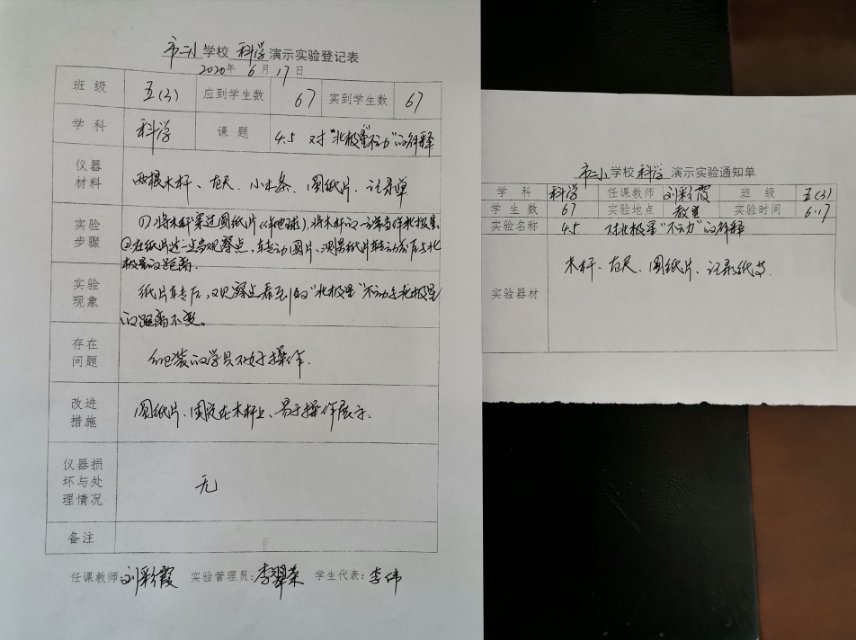 市二小学校 科学 演示实验登记表
2020年 6月 17日
班级 五(3) 应到学生数 67 实到学生数 67
学科 科学 课题 4.5 对"北极星不动"的解释
仪器材料 两根木杆、直尺、小木条、圆纸片、记录单
实验步骤 (1)将木杆穿过圆纸片(作地球),将木杆的一端当作北极星
②在纸片边一点为观察点,转动圆片,观察纸片转动前后与北
极星的距离。
实验现象 纸片转后,观察点看到的"北极星"不动与北极星
的距离不变。
存在问题 包装的学具不好操作.
改进措施 圆纸片、固定在木杆上、易于操作展示.
仪器损坏与处理情况 无
备注
任课教师:刘彩霞 实验管理员:李翠荣 学生代表:李伟
市二小学校 科学 演示实验通知单
学科 科学 任课教师 刘彩霞 班级 五(3)
学生数 67 实验地点 教室 实验时间 6.17
实验名称 4.5 对北极星"不动"的解释
实验器材 木杆、直尺、圆纸片、记录纸等.